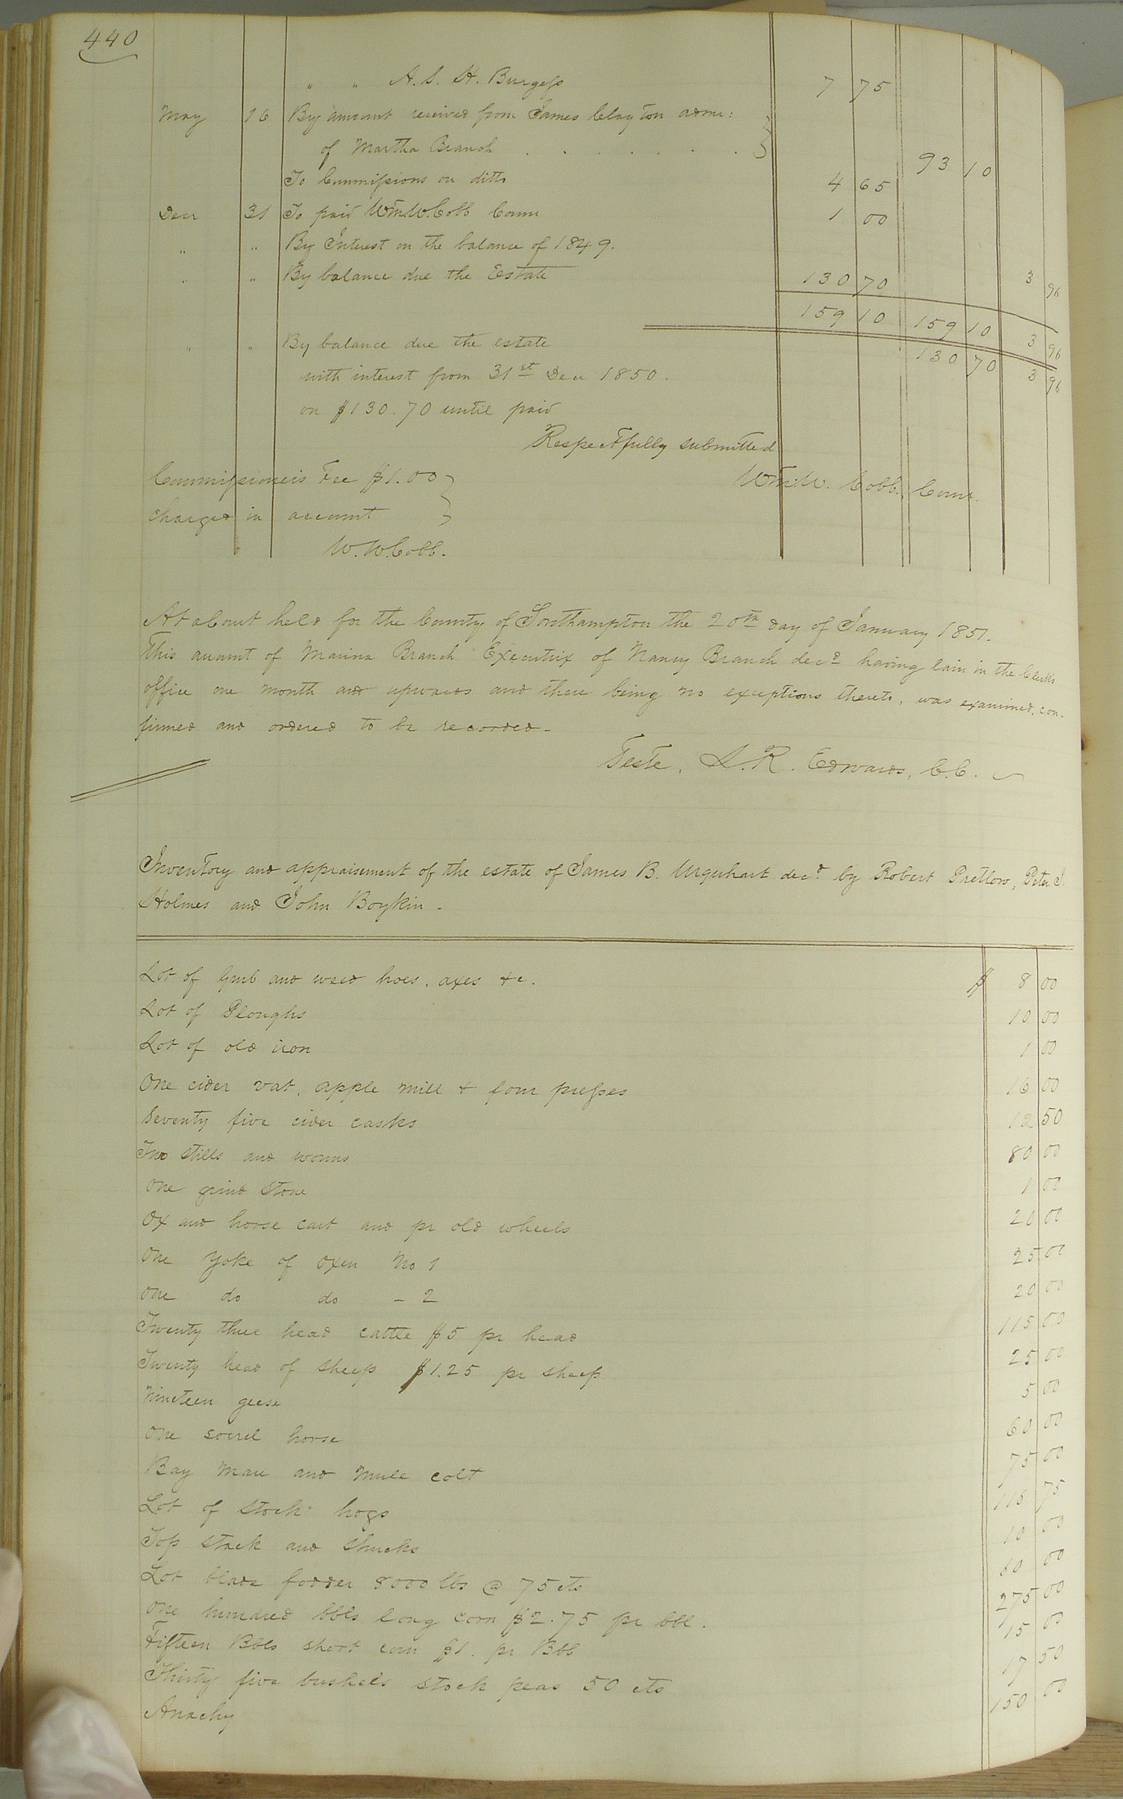 440
" " A. S. H. Burgess 7 75
May 16 By amount received from James Clayton admr:
of Martha Branch . . . . . . . 93 10
To Commissions on ditto 4 65
Dec 31 To paid Wm. W. Cobb Comr 1 00
" " By Interest on the balance of 1849. 3 96
" " By balance due the Estate 130 70
159 10 159 10 3 96
" " By balance due the estate 130 70 3 96
with interest from 31st Dec 1850.
on $130.70 until paid
Respectfully submitted
Wm. W. Cobb. Comr.
Commissioneis Fee $1.00
charged in account
W. W. Cobb.
At a Court held for the County of Southampton the 20th day of January 1851.
This account of Marina Branch Executrix of Nancy Branch decd having lain in the Clerks
office one month and upwards and there being no exceptions thereto, was examined, con-
firmed and ordered to be recorded.
Teste, L. R. Edwards, C.C.
Inventory and appraisement of the estate of James B. Urquhart decd by Robert Pretlow, Peter J.
Holmes and John Boykin.
Lot of Grub and weed hoes, axes &c. $ 8 00
Lot of Ploughs 10 00
Lot of old iron 1 00
One cider vat, apple mill & four presses 16 00
Seventy five cider casks 12 50
Two stills and worms 80 00
One grind stone 1 00
Ox and horse cart and pr old wheels 20 00
One yoke of oxen No 1 25 00
One do do - 2 20 00
Twenty three head cattle $5 pr head 115 00
Twenty head of sheep $1.25 pr sheep 25 00
Nineteen geese 5 00
One sorrel horse 60 00
Bay Mare and Mule colt 75 00
Lot of stock hogs 115 75
Top stack and shucks 10 00
Lot blade fodder 8000 lbs @ 75 cts 60 00
One hundred bbls long corn $2.75 pr bbl. 275 00
Fifteen Bbls short corn $1. pr Bbl 15 00
Thirty five bushels stock peas 50 cts 17 50
Anachy 150 00